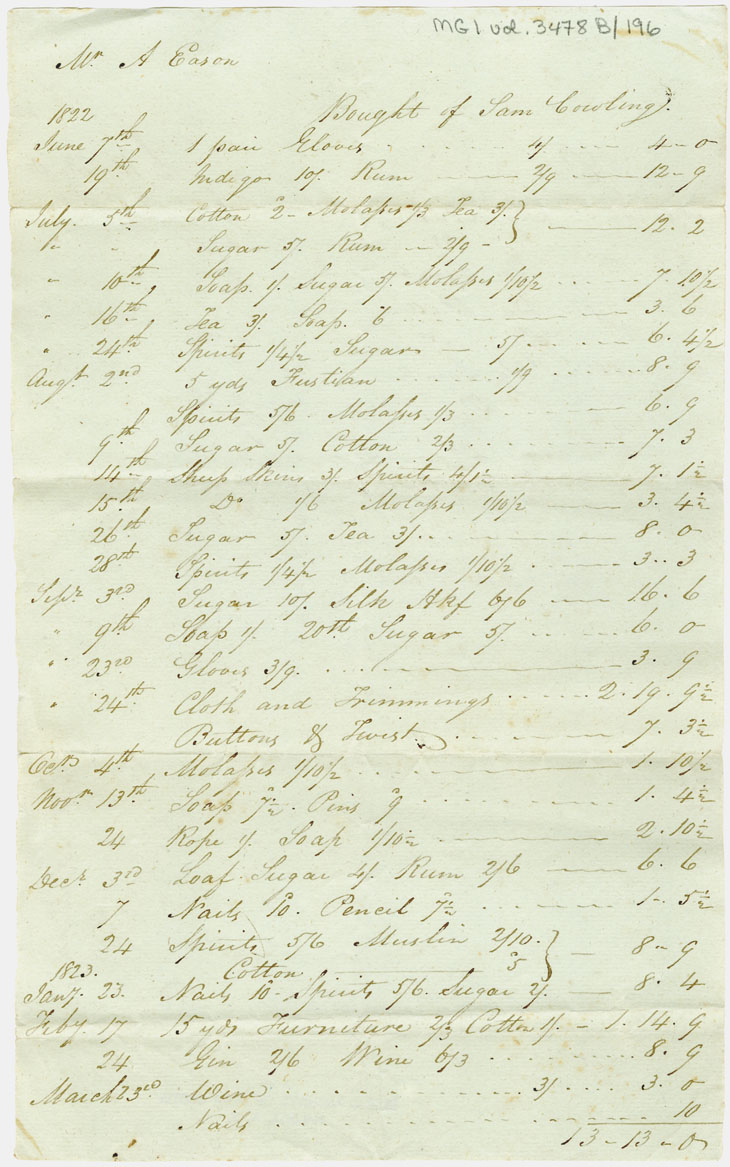 MG1 vol. 3478 B/196
Mr A Eason
1822 Bought of Sam Cowling
June 7th 1 pair Gloves 4/ 4 - 0
19th Indigo 10/. Rum 2/9 12 - 9
July 5th Cotton 2d - Molasses 1/3 Tea 3/. }
" - Sugar 5/. Rum - 2/9 - 12 . 2
" 10th Soap 1/. Sugar 5/. Molasses 1/10½ 7 . 10½
" 16th Tea 3/. Soap /6 3 . 6
" 24th Spirits 1/4½ Sugar - 5/ 6 . 4½
Augt 2nd 5 yds Fustian 1/9 8 . 9
Spirits 5/6 . Molasses 1/3 6 . 9
9th Sugar 5/. Cotton 2/3 7 . 3
14th Sheep Skins 3/. Spirits 4/1½ 7 . 1½
15th Do 1/6 Molasses 1/10½ 3 . 4½
26th Sugar 5/. Tea 3/. 8 . 0
28th Spirits 1/4½ Molasses 1/10½ 3 . 3
Septr 3rd Sugar 10/. Silk Hkf 6/6 16 . 6
" 9th Soap 1/. 20th Sugar 5/. 6 . 0
" 23rd Gloves 3/9 3 . 9
" 24th Cloth and Trimmings 2 . 19 . 9½
Buttons & Twist 7 . 3½
Octr 4th Molasses 1/10½ 1 . 10½
Novr 13th Soap 7½d Pins 9d 1 . 4½
24 Rope 1/. Soap 1/10½ 2 . 10½
Decr 3rd Loaf Sugar 4/. Rum 2/6 6 . 6
7 Nails 10d . Pencil 7½d 1 - 5½
24 Spirits 5/6 Muslin 2/10 . }
1823. Cotton 5d - 8 - 9
Jany. 23. Nails 10d - Spirits 5/6 . Sugar 2/. 8 . 4
Feby. 17 15 yds Furniture 2/3 Cotton 1/. - 1 . 14 . 9
24 Gin 2/6 Wine 6/3 8 . 9
March 23rd Wine 3/ 3 . 0
Nails 10
13 - 13 - 0